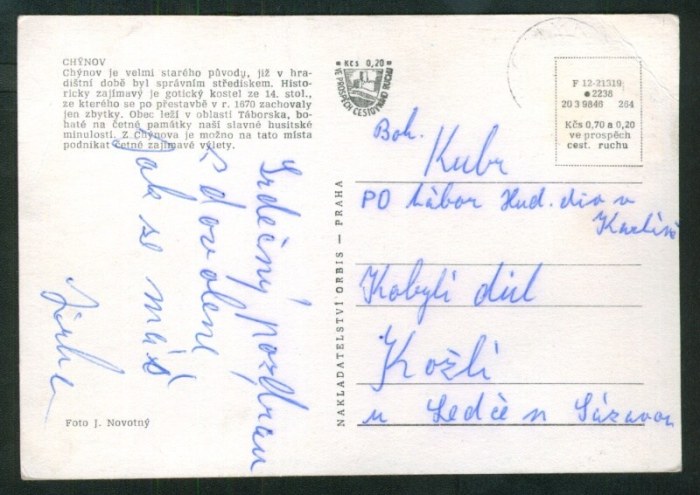 CHÝNOV
Chýnov je velmi starého původy, již v hra-
dištní době byl správním střediskem. Histo-
ricky zajímavý je gotický kostel ze 14. stol.,
ze kterého se po přestavbě v r. 1670 zachovaly
jen zbytky. Obec leží v oblasti Táborska, bo-
haté na četné památky naší slavné husitské
minulosti. Z Chýnova je možno na tato místa
podnikat četné zajímavé výlety.
Srdečný pozdrav
z dovolené
Jak se máš
Jirka
Foto J. Novotný
NAKLADATELSTVÍ ORBIS — PRAHA
Kčs 0,20
VE PROSPĚCH CESTOVNÍHO RUCHU
F 12-21319
2238
20 3 9846 264
Kčs 0,70 a 0,20
ve prospěch
cest. ruchu
Boh. Kubr
PO tábor Hud. div v
Karlíně
Kobylí důl
Kožlí
u Ledče n Sázavou